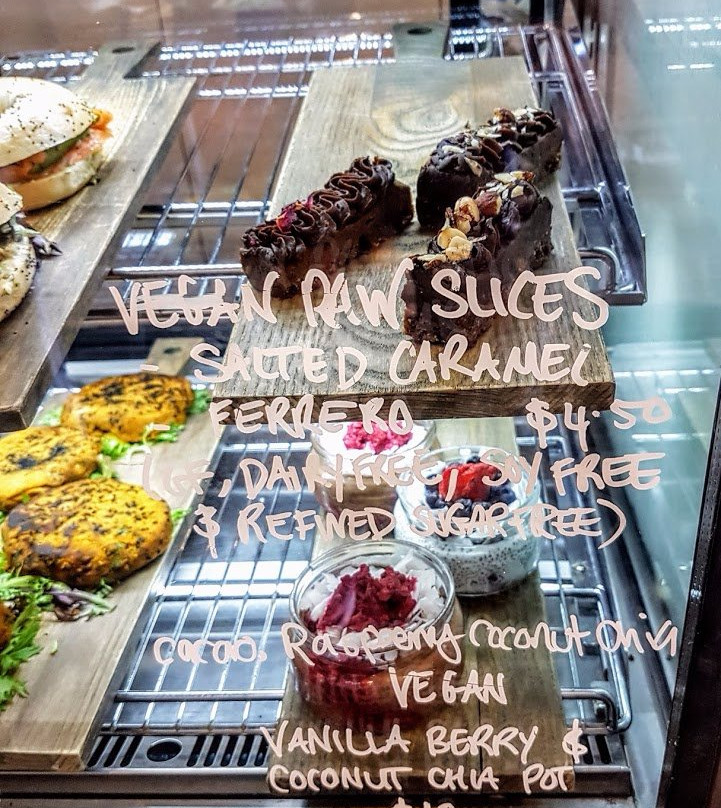 VEGAN RAW SLICES
- SALTED CARAMEL
- FERRERO $4.50
(GF, DAIRY FREE, SOY FREE
& REFINED SUGAR FREE)
cacao, Raspberry coconut chia
VEGAN
VANILLA BERRY &
COCONUT CHIA POT